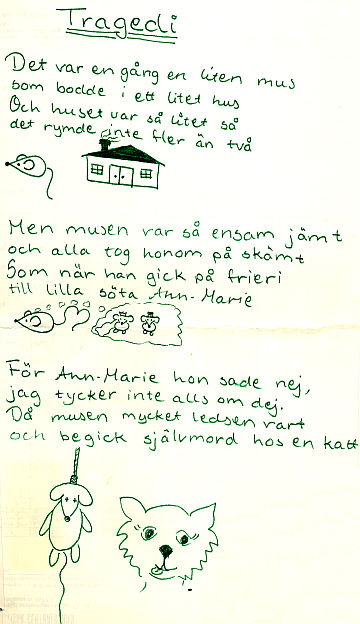 Tragedi
Det var en gång en liten mus
som bodde i ett litet hus
Och huset var så litet så
det rymde inte fler än två
Men musen var så ensam jämt
och alla tog honom på skämt
Som när han gick på frieri
till lilla söta Ann-Marie
För Ann-Marie hon sade nej,
jag tycker inte alls om dej.
Då musen mycket ledsen vart
och begick självmord hos en katt